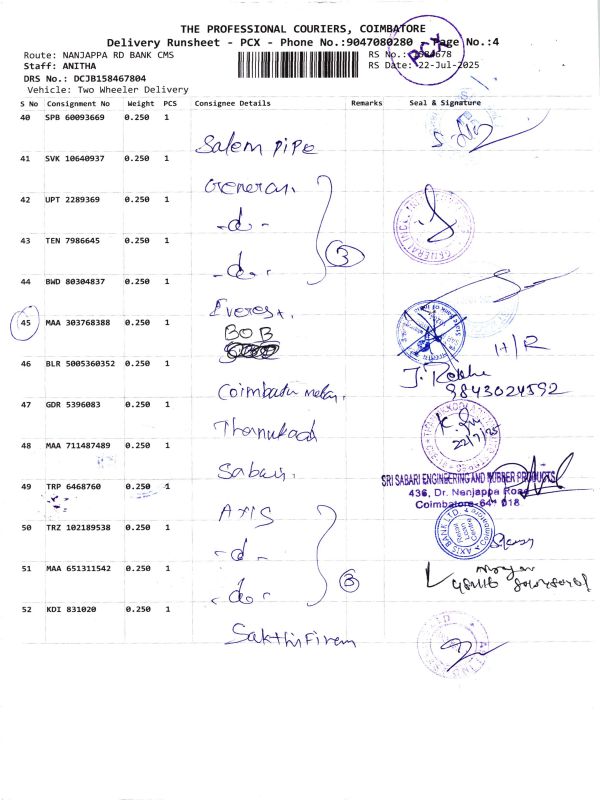 THE PROFESSIONAL COURIERS, COIMBATORE
Delivery Runsheet - PCX - Phone No.:9047080280 - Page No.:4
PCX
Route: NANJAPPA RD BANK CMS
RS No.:
Staff: ANITHA
RS Date: 22-Jul-2025
DRS No.: DCJB158467804
Vehicle: Two Wheeler Delivery
S No Consignment No Weight PCS Consignee Details Remarks Seal & Signature
40 SPB 60093669 0.250 1
Salem PiPe
41 SVK 10640937 0.250 1
General.
42 UPT 2289369 0.250 1
-do-
3
43 TEN 7986645 0.250 1
-do-
44 BWD 80304837 0.250 1
Everest.
45 MAA 303768388 0.250 1
BOB
H/R
46 BLR 5005360352 0.250 1
9843024592
Coimbatore
47 GDR 5396083 0.250 1
22/7/25
48 MAA 711487489 0.250 1
Sabari.
SRI SABARI ENGINEERING AND RUBBER PRODUCTS
436, Dr. Nanjappa Road
Coimbatore-641 018
49 TRP 6468760 0.250 1
AXIS
AXIS BANK LTD
50 TRZ 102189538 0.250 1
-do-
51 MAA 651311542 0.250 1
3
-do-
52 KDI 831020 0.250 1